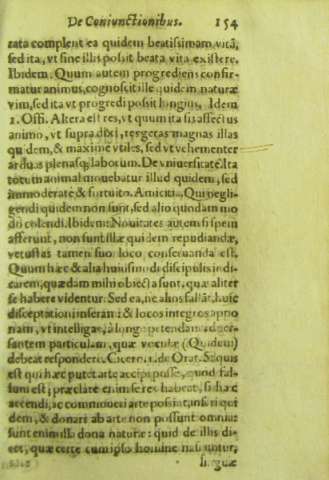 De Coniunctionibus. 154
rata complent ea quidem beatissimam vitã,
sed ita, vt sine illis possit beata vita existere.
Ibidem. Quum autem progrediens confir-
matur animus, cognoscit ille quidem naturæ
vim, sed ita vt progredi possit longius, Idem
1. Offi. Altera est res, vt quum ita sis affectus
animo, vt supra dixi, res geras magnas illas
quidem, & maximè vtiles, sed vt vehementer
arduas plenasq; laborum. De vniuersitate. Ita
totum animal mouebatur illud quidem, sed
immoderatè & fortuito. Amicitia, Qui negli-
gendi quidem non sunt, sed alio quodam mo
do colendi. Ibidem: Nouitates autem si spem
afferunt, non sunt illæ quidem repudiandæ,
vetustas tamen suo loco conseruanda est.
Quum hæc & alia huiusmodi discipulis indi-
carem, quædam mihi obiecta sunt, quæ aliter
se habere videntur. Sed ea, ne alios fallãt, huic
disceptationi inseram: & locos integros appo
nam, vt intelligas, à longè petendam aduer-
santem particulam, quæ voculæ (Quidem)
debeat respondere. Cicero. 1. de Orat. Si quis
est qui hæc putet arte accipi posse, quod fal-
sum est; præclarè enim se res habeat, si hæc
accendi, ac commoueri arte possint, inseri qui
dem, & donari ab arte non possunt omnia:
sunt enim illa dona naturæ: quid de illis di-
cet, quæ certe cum ipso homine nascuntur,
linguæ